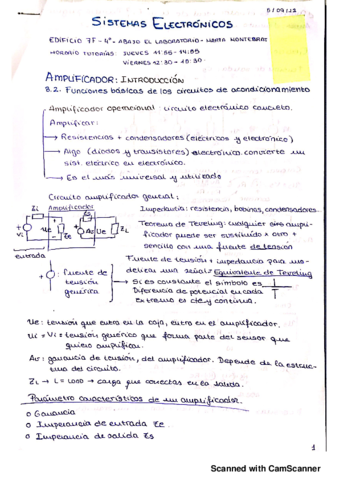 5/09/22
SISTEMAS ELECTRÓNICOS
EDIFICIO 7F - 4º - ABAJO EL LABORATORIO - MARTA MONTEBRAS
HORARIO TUTORÍAS: JUEVES 11:55 - 14:55
VIERNES 12:30 - 15:30
AMPLIFICADOR: INTRODUCCIÓN
8.2. Funciones básicas de los circuitos de acondicionamiento
Amplificador operacional: circuito electrónico concreto.
Amplificar:
→ Resistencias + condensadores (eléctricos y electrónico)
→ Algo (diodos y transistores) electrónico. convierte un
sist. eléctrico en electrónico.
→ Es el más universal y utilizado
Circuito amplificador general:
Zi Amplificador
Impedancia: resistencia, bobinas, condensadores.
Vi Ue Ze AvUe ZL
Teorema de Teveling: cualquier otro ampli-
ficador puede ser sustituido x otro +
sencillo con una fuente de tensión
entrada
Fuente de tensión + impedancia para mo-
delizar una señal: Equivalente de Teveling
: fuente de
tensión
genérica
→ Si es constante el símbolo es
Diferencia de potencial en cada
extremo es cte y continua.
Ue: tensión que entra en la caja, entra en el amplificador.
Ui = Vi = tensión genérica que forma parte del sensor que
quiero amplificar.
Av: ganancia de tensión, del amplificador. Depende de la estruc-
tura del circuito.
ZL → L = LOAD → carga que conectas en la salida.
Parámetro característicos de un amplificador
o Ganancia
o Impedancia de entrada Ze
o Impedancia de salida Zs
1
Scanned with CamScanner